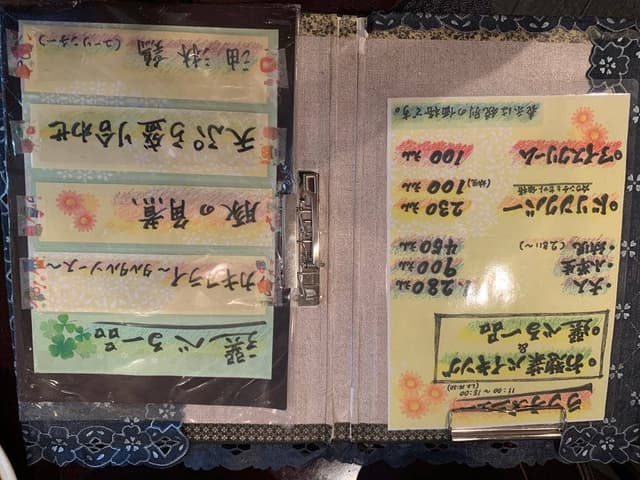 ランチメニュー
11:00〜15:00
•お惣菜バイキング
&
•選べる一品
•大人 1,280円
•小学生 900円
•幼児(2才〜) 450円
•ドリンクバー 230円
(幼児)100円
•アイスクリーム 100円
表示は税別の価格です。
選べる一品
カキフライ〜タルタルソース〜
豚の角煮
天ぷら盛り合わせ
油淋鶏(ユーリンチー)